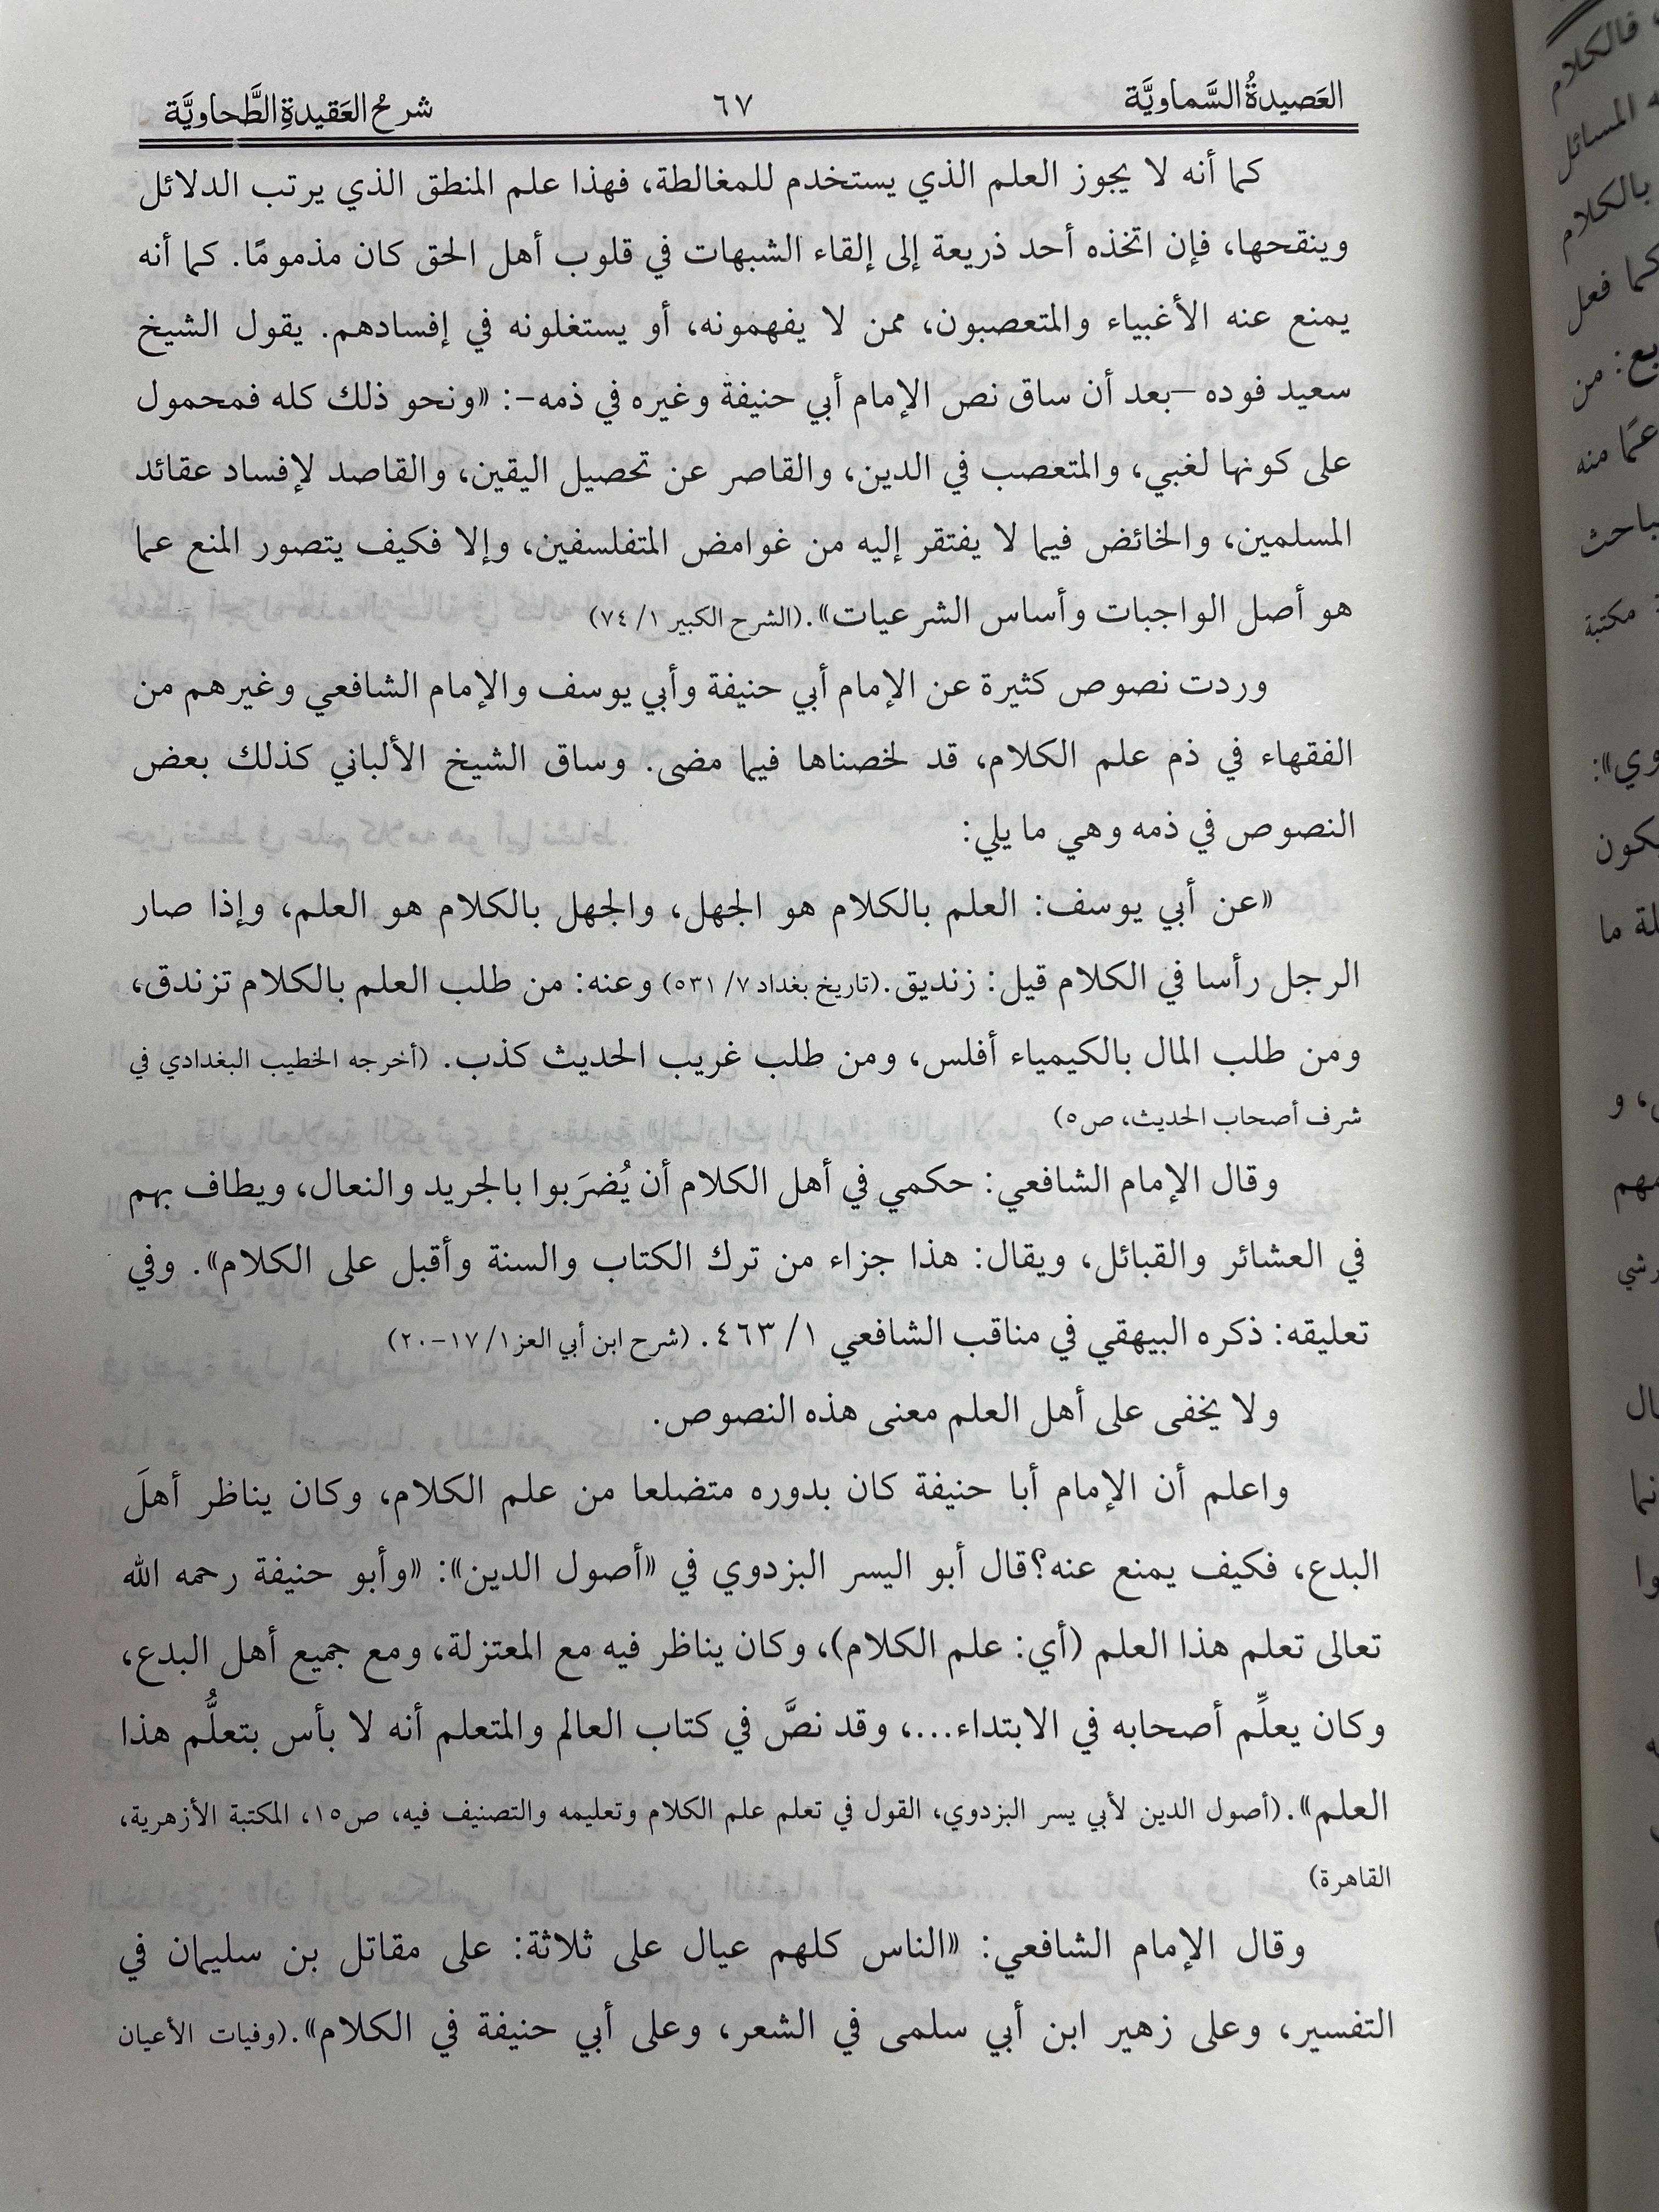 العَصيدةُ السَّماويَّة ٦٧ شرحُ العَقيدةِ الطَّحاويَّة
كما أنه لا يجوز العلم الذي يستخدم للمغالطة، فهذا علم المنطق الذي يرتب الدلائل
وينقحها، فإن اتخذه أحد ذريعة إلى إلقاء الشبهات في قلوب أهل الحق كان مذمومًا. كما أنه
يمنع عنه الأغبياء والمتعصبون، ممن لا يفهمونه، أو يستغلونه في إفسادهم. يقول الشيخ
سعيد فوده –بعد أن ساق نص الإمام أبي حنيفة وغيره في ذمه–: «ونحو ذلك كله فمحمول
على كونها لغبي، والمتعصب في الدين، والقاصر عن تحصيل اليقين، والقاصد لإفساد عقائد
المسلمين، والخائض فيما لا يفتقر إليه من غوامض المتفلسفين، وإلا فكيف يتصور المنع عما
هو أصل الواجبات وأساس الشرعيات».(الشرح الكبير ١/ ٧٤)
وردت نصوص كثيرة عن الإمام أبي حنيفة وأبي يوسف والإمام الشافعي وغيرهم من
الفقهاء في ذم علم الكلام، قد لخصناها فيما مضى. وساق الشيخ الألباني كذلك بعض
النصوص في ذمه وهي ما يلي:
«عن أبي يوسف: العلم بالكلام هو الجهل، والجهل بالكلام هو العلم، وإذا صار
الرجل رأسا في الكلام قيل: زنديق.(تاريخ بغداد ٧/ ٥٣١) وعنه: من طلب العلم بالكلام تزندق،
ومن طلب المال بالكيمياء أفلس، ومن طلب غريب الحديث كذب. (أخرجه الخطيب البغدادي في
شرف أصحاب الحديث، ص٥)
وقال الإمام الشافعي: حكمي في أهل الكلام أن يُضرَبوا بالجريد والنعال، ويطاف بهم
في العشائر والقبائل، ويقال: هذا جزاء من ترك الكتاب والسنة وأقبل على الكلام». وفي
تعليقه: ذكره البيهقي في مناقب الشافعي ١/ ٤٦٣. (شرح ابن أبي العز١/ ١٧–٢٠)
ولا يخفى على أهل العلم معنى هذه النصوص.
واعلم أن الإمام أبا حنيفة كان بدوره متضلعا من علم الكلام، وكان يناظر أهلَ
البدع، فكيف يمنع عنه؟قال أبو اليسر البزدوي في «أصول الدين»: «وأبو حنيفة رحمه الله
تعالى تعلم هذا العلم (أي: علم الكلام)، وكان يناظر فيه مع المعتزلة، ومع جميع أهل البدع،
وكان يعلِّم أصحابه في الابتداء...، وقد نصَّ في كتاب العالم والمتعلم أنه لا بأس بتعلُّم هذا
العلم».(أصول الدين لأبي يسر البزدوي، القول في تعلم علم الكلام وتعليمه والتصنيف فيه، ص١٥، المكتبة الأزهرية،
القاهرة)
وقال الإمام الشافعي: «الناس كلهم عيال على ثلاثة: على مقاتل بن سليمان في
التفسير، وعلى زهير ابن أبي سلمى في الشعر، وعلى أبي حنيفة في الكلام».(وفيات الأعيان
فالكلام
المسائل
بالكلام
كما فعل
من
منه
مكتبة